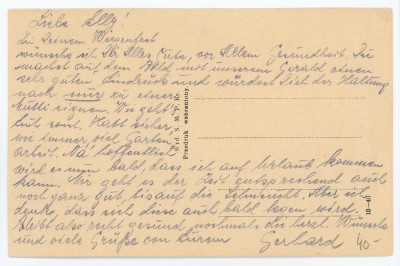 Liebe Elly!
Zu Deinem Wiegenfest
wünsche ich Dir Alles Gute, vor Allem Gesundheit. Du
machst auf dem Bild mit unserem Gerald einen
sehr guten Eindruck und würdest Dich der Haltung
nach nur zu einer
Mutti eignen. Wie geht's
Habt sicher
wie immer viel Garten
arbeit. Na! hoffentlich
wird es nun bald, dass ich auf Urlaub kommen
kann. Mir geht es der Zeit entsprechend auch
noch ganz gut, bis auf die Sehnsucht. Aber ich
denke, dass sich diese auch bald legen wird.
Bleibt also recht gesund nochmals die herzl. Wünsche
und viele Grüße von Eurem Gerhard
40-
Wyd. S. M. P. Kr.
Przedruk wzbroniony.
10-40